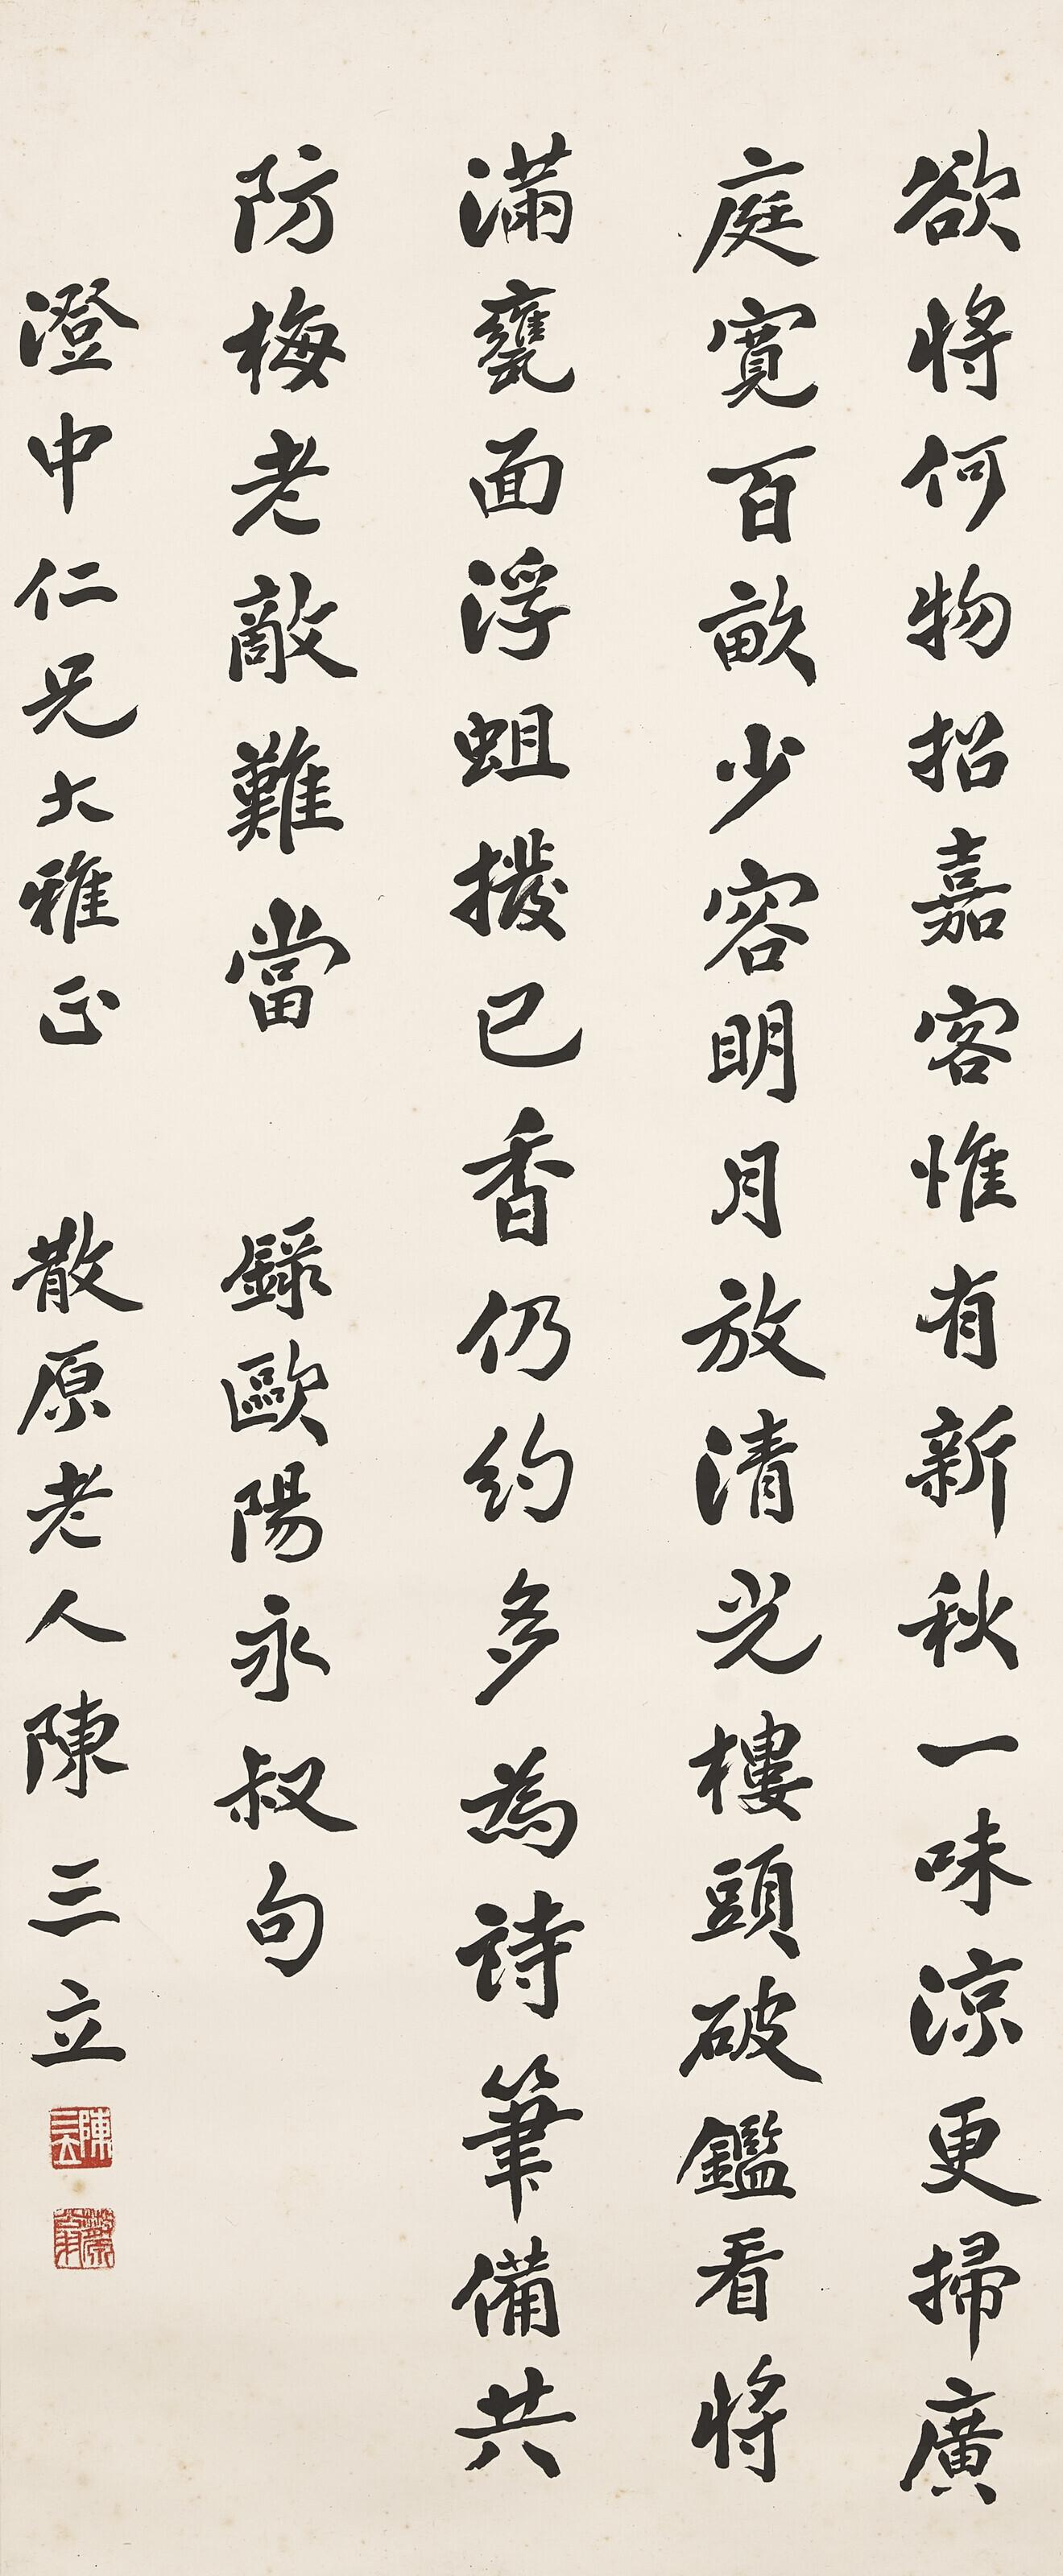 欲將何物招嘉客惟有新秋一味涼更掃廣
庭寬百畝少容眀月放清光樓頭破鑑看將
滿甕面浮蛆撥已香仍約多為詩筆備共
防梅老敵難當 錄歐陽永叔句
澄中仁兄大雅正 散原老人陳三立
陳三立